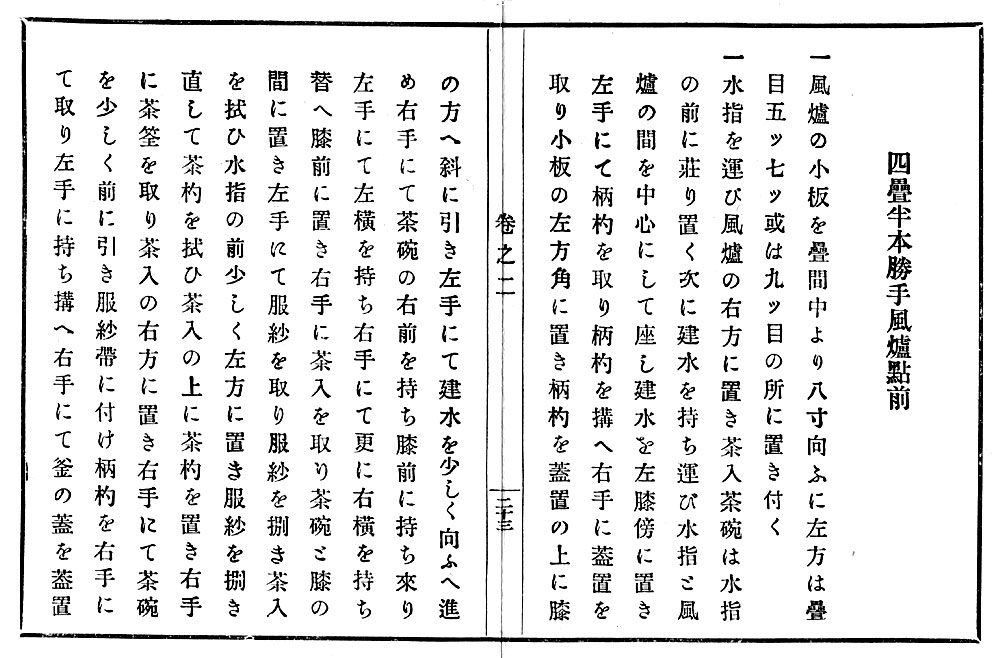 四疊半本勝手風爐點前
一風爐の小板を疊間中より八寸向ふに左方は疊
目五ッ七ッ或は九ッ目の所に置き付く
一水指を運び風爐の右方に置き茶入茶碗は水指
の前に莊り置く次に建水を持ち運び水指と風
爐の間を中心にして座し建水を左膝傍に置き
左手にて柄杓を取り柄杓を搆へ右手に蓋置を
取り小板の左方角に置き柄杓を蓋置の上に膝
卷之二
二十三
の方へ斜に引き左手にて建水を少しく向ふへ進
め右手にて茶碗の右前を持ち膝前に持ち來り
左手にて左橫を持ち右手にて更に右橫を持ち
替へ膝前に置き右手に茶入を取り茶碗と膝の
間に置き左手にて服紗を取り服紗を捌き茶入
を拭ひ水指の前少しく左方に置き服紗を捌き
直して茶杓を拭ひ茶入の上に茶杓を置き右手
に茶筌を取り茶入の右方に置き右手にて茶碗
を少しく前に引き服紗帶に付け柄杓を右手に
て取り左手に持ち搆へ右手にて釜の蓋を蓋置